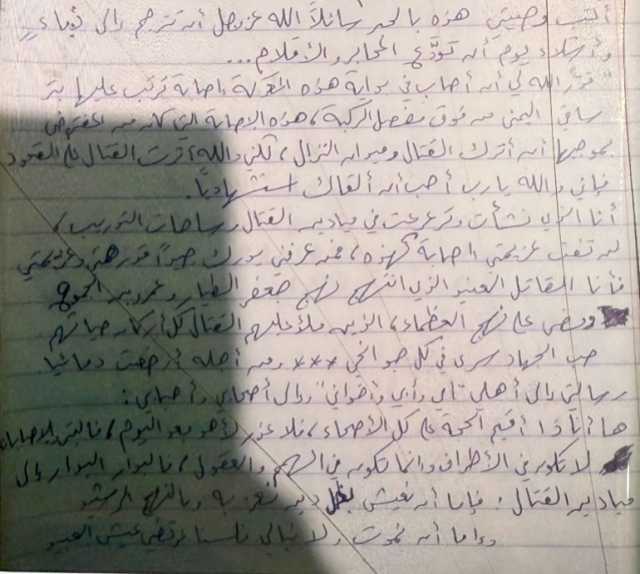 أكتب وصيتي هذه بالحبر سائلاً الله عز وجل أن تترجم إلى دماءٍ
وأشلاء يوم أن تودَّع المحابر والأقلام...
قدَّر الله لي أن أصاب في بداية هذه المعركة إصابة ترتب عليها بتر
ساقي اليمنى من فوق مفصل الركبة، هذه الإصابة التي كان من المفترض
بموجبها أن أترك القتال وميدان النزال، لكني والله آثرت القتال على القعود
فإني والله يارب أحب أن ألقاك استشهادياً.
أنا الذي نشأت وترعرعت في ميادين القتال وساحات التدريب،
لن تفت عزيمتي إصابة كهذه، فمن عرفني يدرك جيداً قدر همتي وعزيمتي
فأنا المقاتل العنيد الذي انتهج نهج جعفر الطيار وعمرو بن الجموح
ومضى على نهج العظماء، الذين ملأ عليهم القتال كل أركان حياتهم
حب الجهاد سرى في كل جوانحي *** ومن أجله أرخصت دمائيا
رسالتي إلى أهلي "أبي وأمي وإخواني" وإلى أصحابي وأحبابي:
ها أنا ذا أقيم الحجة على كل الأصحاء، فلا عذر لأحد بعد اليوم، فالبتر والإصابات
لا تكون في الأطراف وإنما تكون في الهمم والعقول، فالبدار البدار إلى
ميادين القتال. فإما أن نعيش بظل دين نعتز به وبالنهج الرشيد
وإما أن نموت ولا نبالي فلسنا نرتضي عيش العبيد